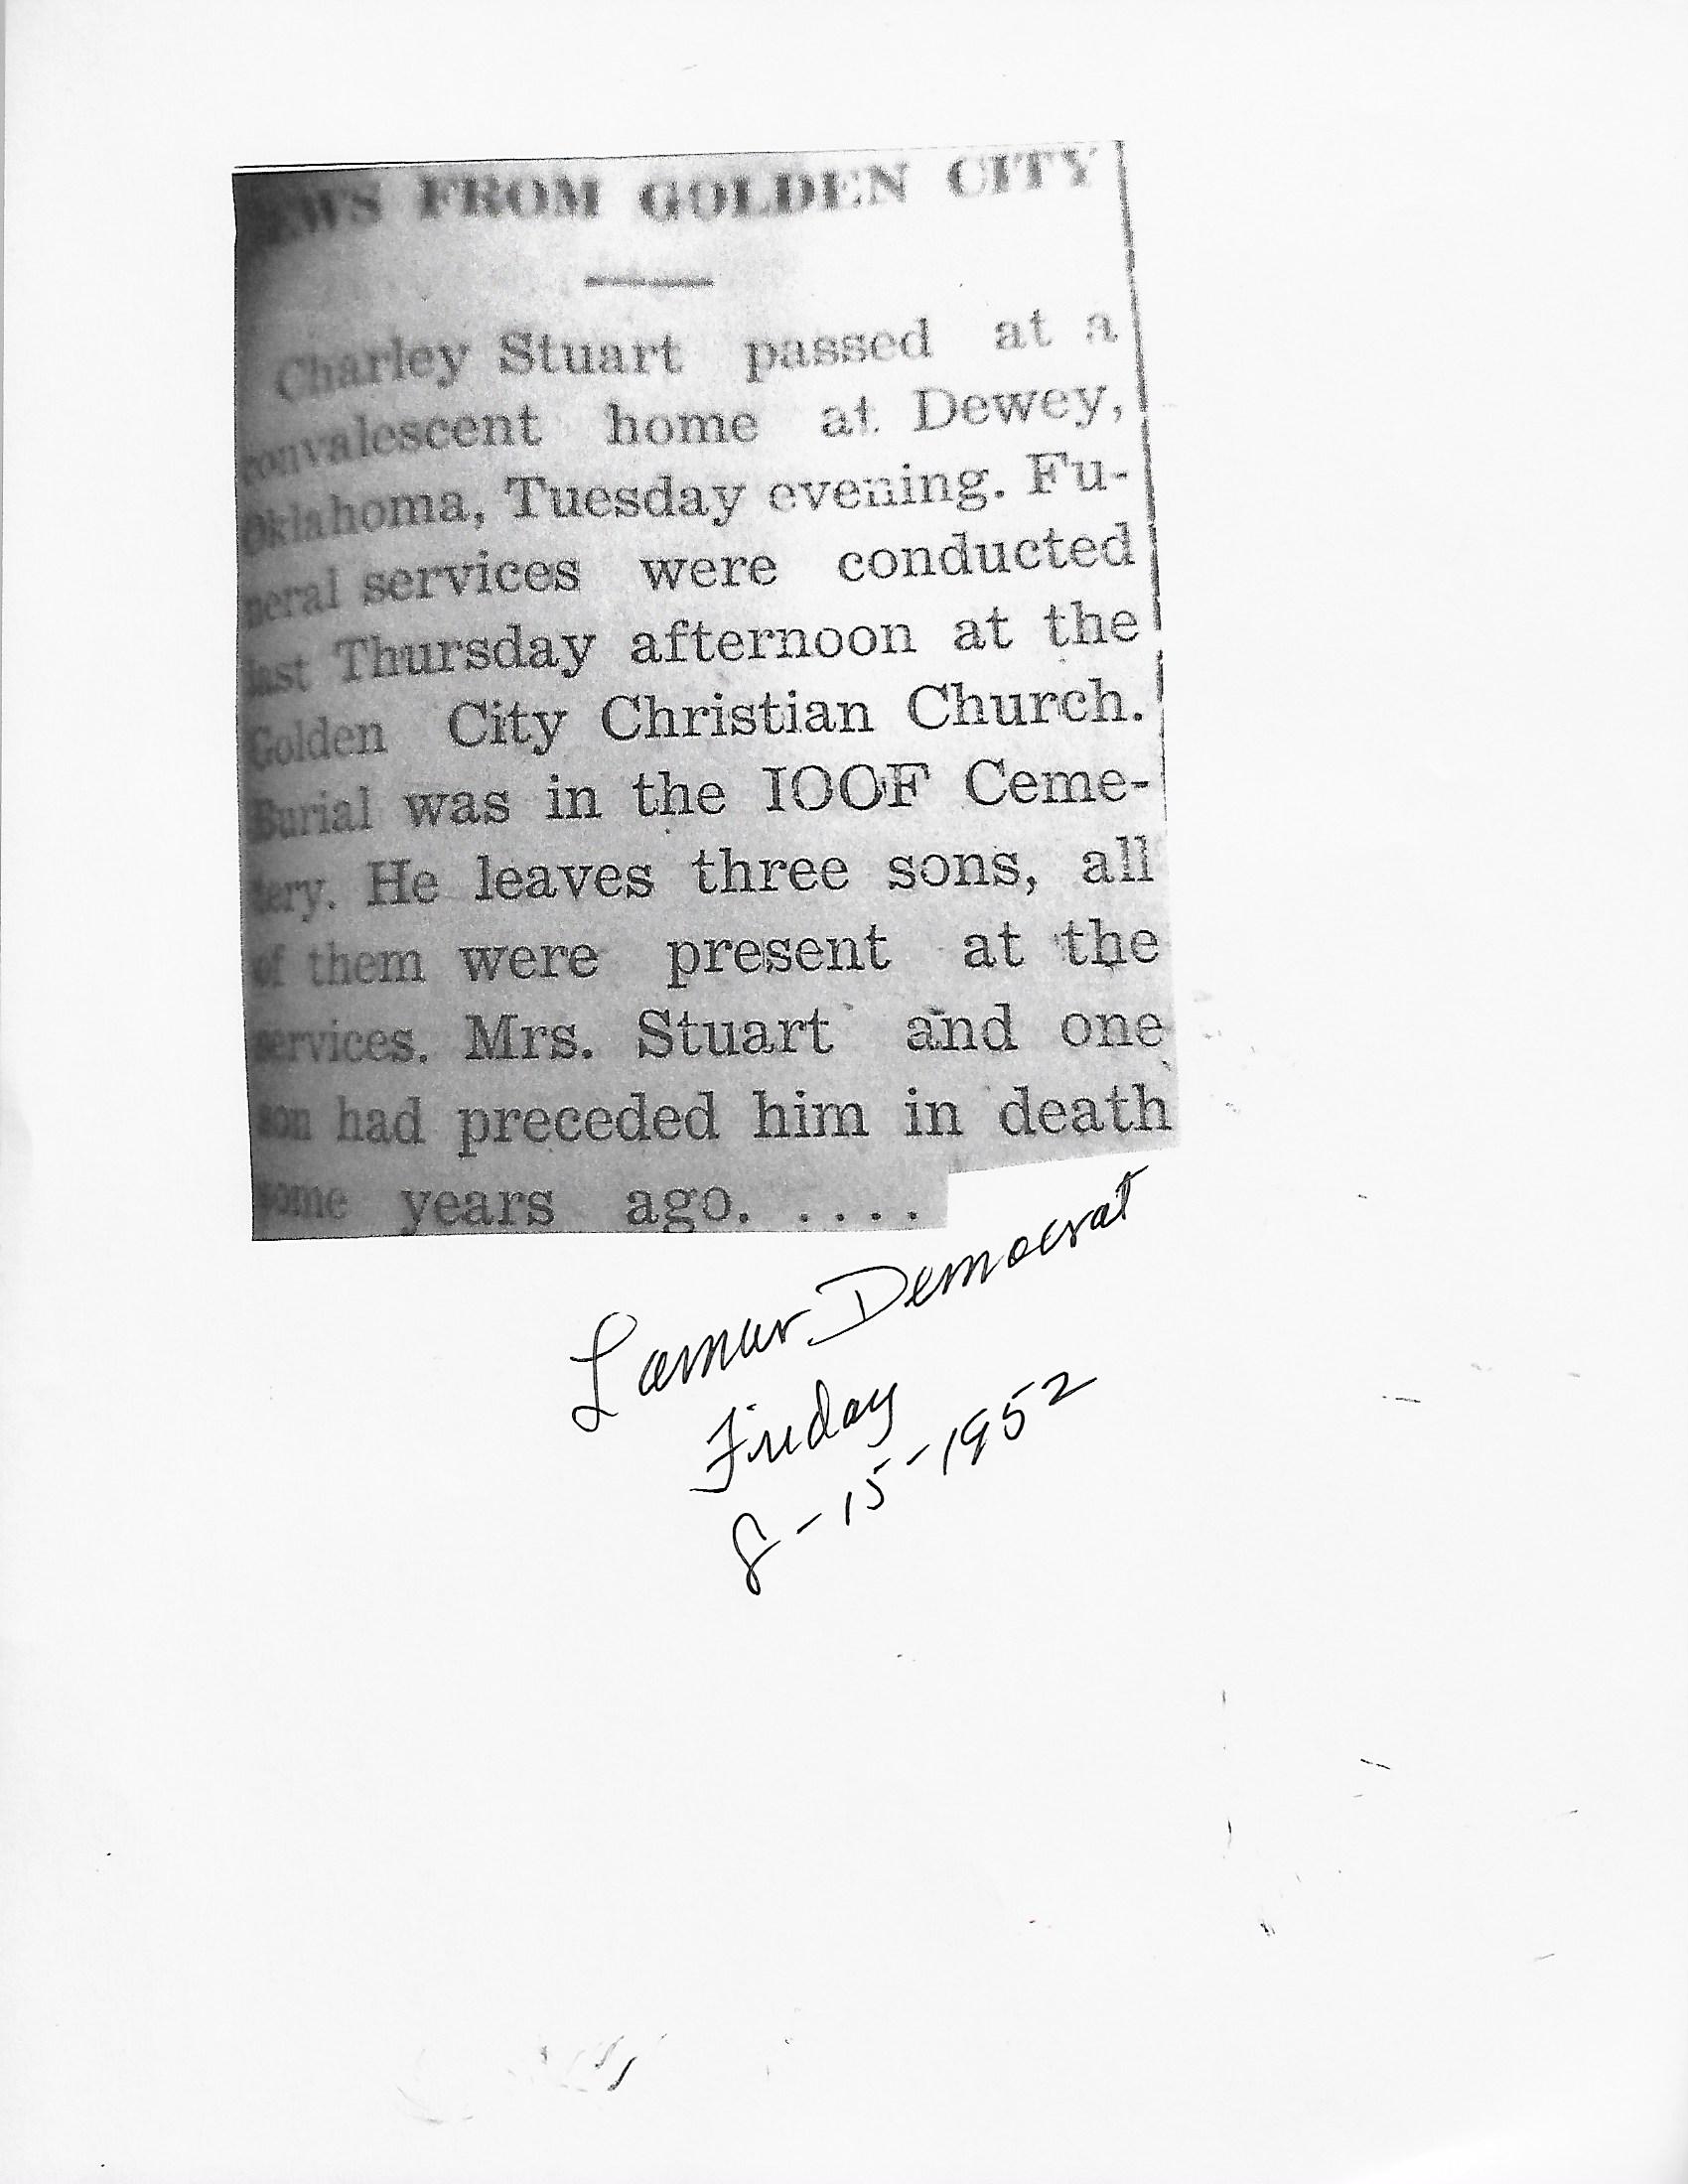 NEWS FROM GOLDEN CITY
Charley Stuart passed at a
convalescent home at Dewey,
Oklahoma, Tuesday evening. Fu-
neral services were conducted
last Thursday afternoon at the
Golden City Christian Church.
Burial was in the IOOF Ceme-
tery. He leaves three sons, all
of them were present at the
services. Mrs. Stuart and one
son had preceded him in death
some years ago. ....
Lamar Democrat
Friday
8-15-1952